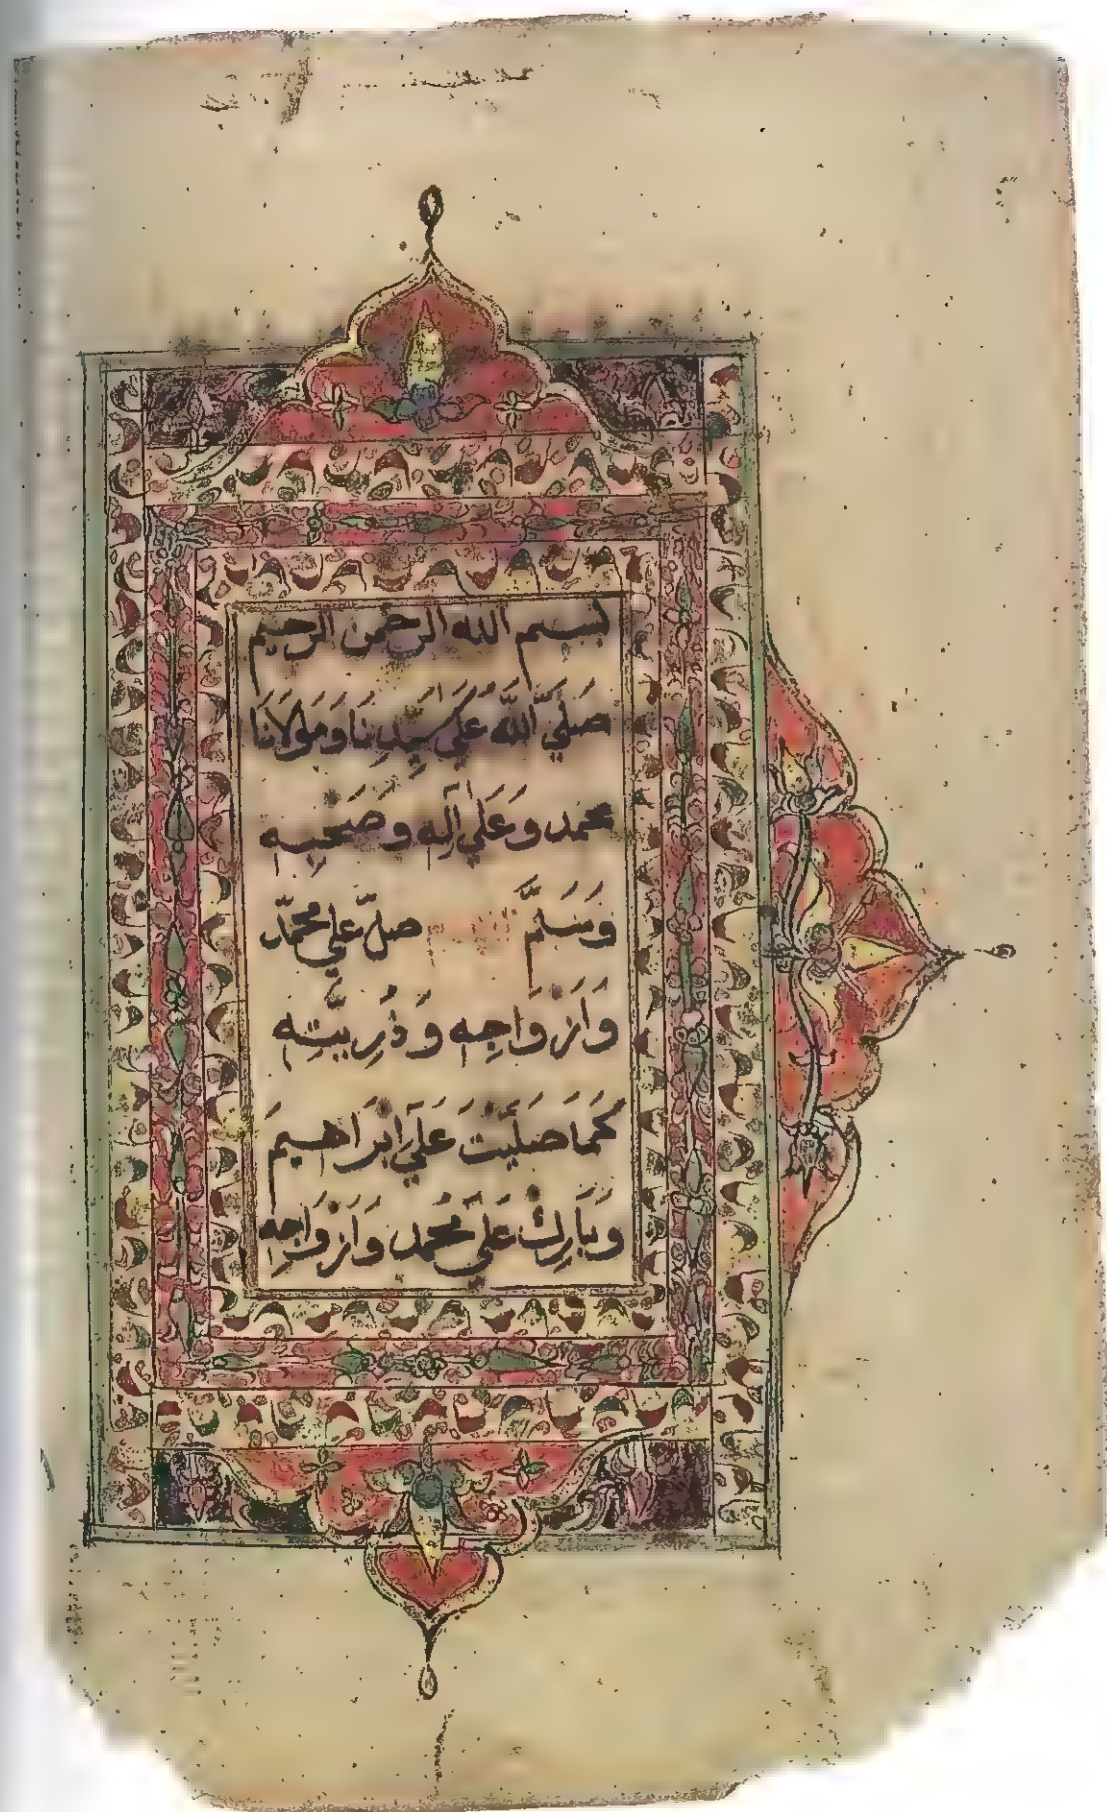 بسم الله الرحمن الرحيم
صَلَّي اللّٰه عَلَي سَيِّدِنَا وَمَوْلَانَا
محمد وَعَلَي آلِهِ وَصَحْبِهِ
وَسَلَّمَ صلّ علي محمّد
وَاَزْوَاجِهِ وَذُرِيَّتِهِ
كَمَا صَلَّيْتَ عَلَي اِبْرَاهِيمَ
وَبَارِكْ عَلَي مُحَمد وَاَزْوَاجِهِ